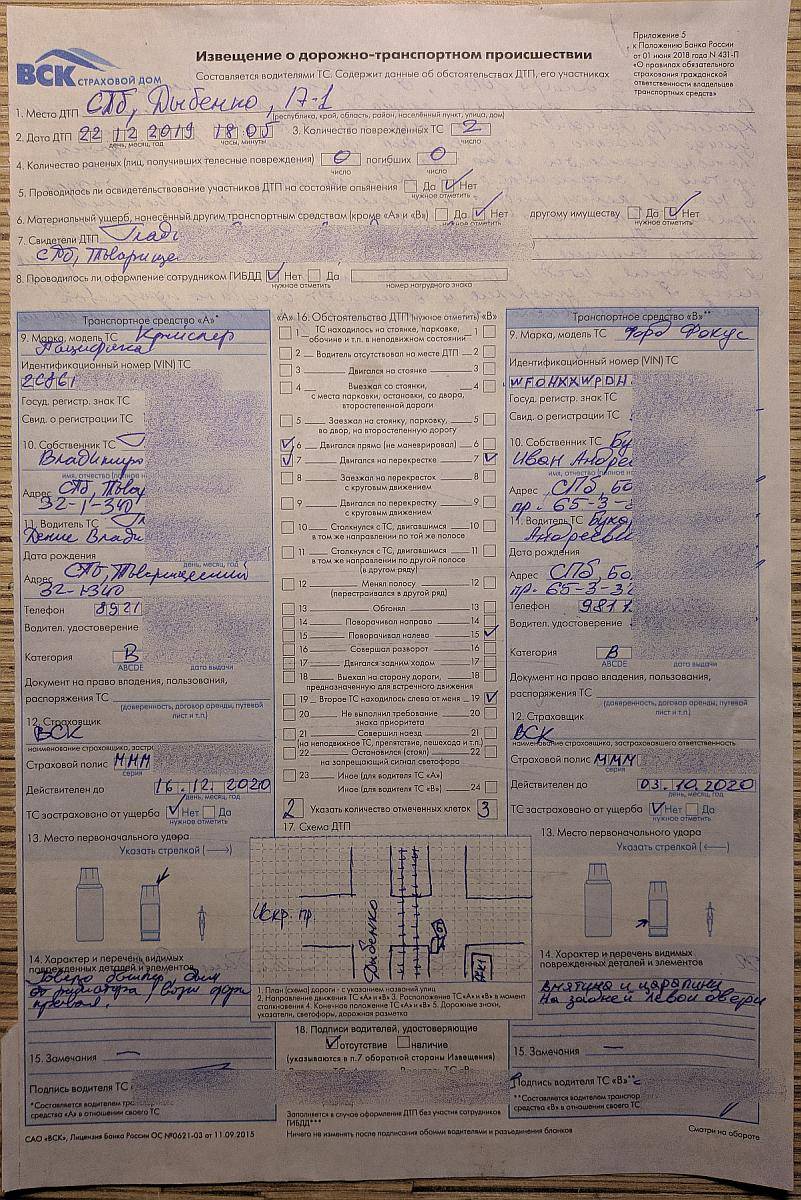 ВСК СТРАХОВОЙ ДОМ
Извещение о дорожно-транспортном происшествии
Составляется водителями ТС. Содержит данные об обстоятельствах ДТП, его участниках
Приложение 5
к Положению Банка России
от 01 июня 2018 года N 431-П
«О правилах обязательного
страхования гражданской
ответственности владельцев
транспортных средств»
1. Место ДТП СПб, Дыбенко, 17-1
(республика, край, область, район, населённый пункт, улица, дом)
2. Дата ДТП 22 12 2019 18 05 3. Количество поврежденных ТС 2
день, месяц, год часы, минуты число
4. Количество раненых (лиц, получивших телесные повреждения) 0 погибших 0
число число
5. Проводилось ли освидетельствование участников ДТП на состояние опьянения Да Нет
нужное отметить
6. Материальный ущерб, нанесённый другим транспортным средствам (кроме «А» и «В») Да Нет другому имуществу Да Нет
нужное отметить нужное отметить
7. Свидетели ДТП
СПб, Товарище
8. Проводилось ли оформление сотрудником ГИБДД Нет Да
нужное отметить номер нагрудного знака
Транспортное средство «А»*
9. Марка, модель ТС Крайслер
Пацифика
Идентификационный номер (VIN) ТС
Госуд. регистр. знак ТС
Свид. о регистрации ТС
10. Собственник ТС
Владимиро
имя, отчество (полное н
Адрес СПб, Това
32-1-340
11. Водитель ТС
Денис Влади
Дата рождения
день, месяц, год
Адрес СПб, Товарищеский
32-1-340
Телефон 8921
Водител. удостоверение
Категория В
ABCDE дата выдачи
Документ на право владения, пользования,
распоряжения ТС
(доверенность, договор аренды, путевой
лист и т.п.)
12. Страховщик
ВСК
наименование страховщика, застр
Страховой полис МММ
серия
Действителен до 16.12.2020
день, месяц, год
ТС застраховано от ущерба Нет Да
нужное отметить
13. Место первоначального удара
Указать стрелкой (→)
14. Характер и перечень видимых
поврежденных деталей и элементов
15. Замечания —
Подпись водителя ТС
*Составляется водителем тра
средства «А» в отношении своего ТС
«А» 16. Обстоятельства ДТП (нужное отметить) «В»
1 ТС находилось на стоянке, парковке, 1
обочине и т.п. в неподвижном состоянии
2 Водитель отсутствовал на месте ДТП 2
3 Двигался на стоянке 3
4 Выезжал со стоянки, 4
с места парковки, остановки, со двора,
второстепенной дороги
5 Заезжал на стоянку, парковку, 5
во двор, на второстепенную дорогу
6 Двигался прямо (не маневрировал) 6
7 Двигался на перекрестке 7
8 Заезжал на перекресток 8
с круговым движением
9 Двигался по перекрестку 9
с круговым движением
10 Столкнулся с ТС, двигавшимся 10
в том же направлении по той же полосе
11 Столкнулся с ТС, двигавшимся 11
в том же направлении по другой полосе
(в другом ряду)
12 Менял полосу 12
(перестраивался в другой ряд)
13 Обгонял 13
14 Поворачивал направо 14
15 Поворачивал налево 15
16 Совершал разворот 16
17 Двигался задним ходом 17
18 Выехал на сторону дороги, 18
предназначенную для встречного движения
19 Второе ТС находилось слева от меня 19
20 Не выполнил требование 20
знака приоритета
21 Совершил наезд 21
(на неподвижное ТС, препятствие, пешехода и т.п.)
22 Остановился (стоял) 22
на запрещающий сигнал светофора
23 Иное (для водителя ТС «А»)
Иное (для водителя ТС «В») 24
2 Указать количество отмеченных клеток 3
17. Схема ДТП
Искр. пр.
Дыбенко
1. План (схема) дороги - с указанием названий улиц
2. Направление движения ТС «А» и «В» 3. Расположение ТС «А» и «В» в момент
столкновения 4. Конечное положение ТС «А» и «В» 5. Дорожные знаки,
указатели, светофоры, дорожная разметка
18. Подписи водителей, удостоверяющие
отсутствие наличие
(указываются в п.7 оборотной стороны Извещения)
Заполняется в случае оформления ДТП без участия сотрудников
ГИБДД***
Ничего не изменять после подписания обоими водителями и разъединения бланков
Транспортное средство «В»**
9. Марка, модель ТС Форд Фокус
Идентификационный номер (VIN) ТС
WF0HXXWPDH
Госуд. регистр. знак ТС
Свид. о регистрации ТС
10. Собственник ТС Бу
Иван Андре
имя, отчество (полное
Адрес СПб, Бо
пр. 65-3-
11. Водитель ТС
Андреевич
Дата рождения
Адрес СПб, Бо
пр. 65-3-32
Телефон
Водител. удостоверение
Категория В
ABCDE дата выдачи
Документ на право владения, пользования,
распоряжения ТС
(доверенность, договор аренды, путевой
лист и т.п.)
12. Страховщик
ВСК
наименование страховщика, застраховавшего ответственность
Страховой полис МММ
серия
Действителен до 03.10.2020
день, месяц, год
ТС застраховано от ущерба Нет Да
нужное отметить
13. Место первоначального удара
Указать стрелкой (←)
14. Характер и перечень видимых
поврежденных деталей и элементов
Вмятина и царапины
на задней левой двери
15. Замечания —
Подпись водителя ТС «В»**
**Составляется водителем транспор
средства «В» в отношении своего ТС
САО «ВСК», Лицензия Банка России ОС №0621-03 от 11.09.2015
Смотри на обороте